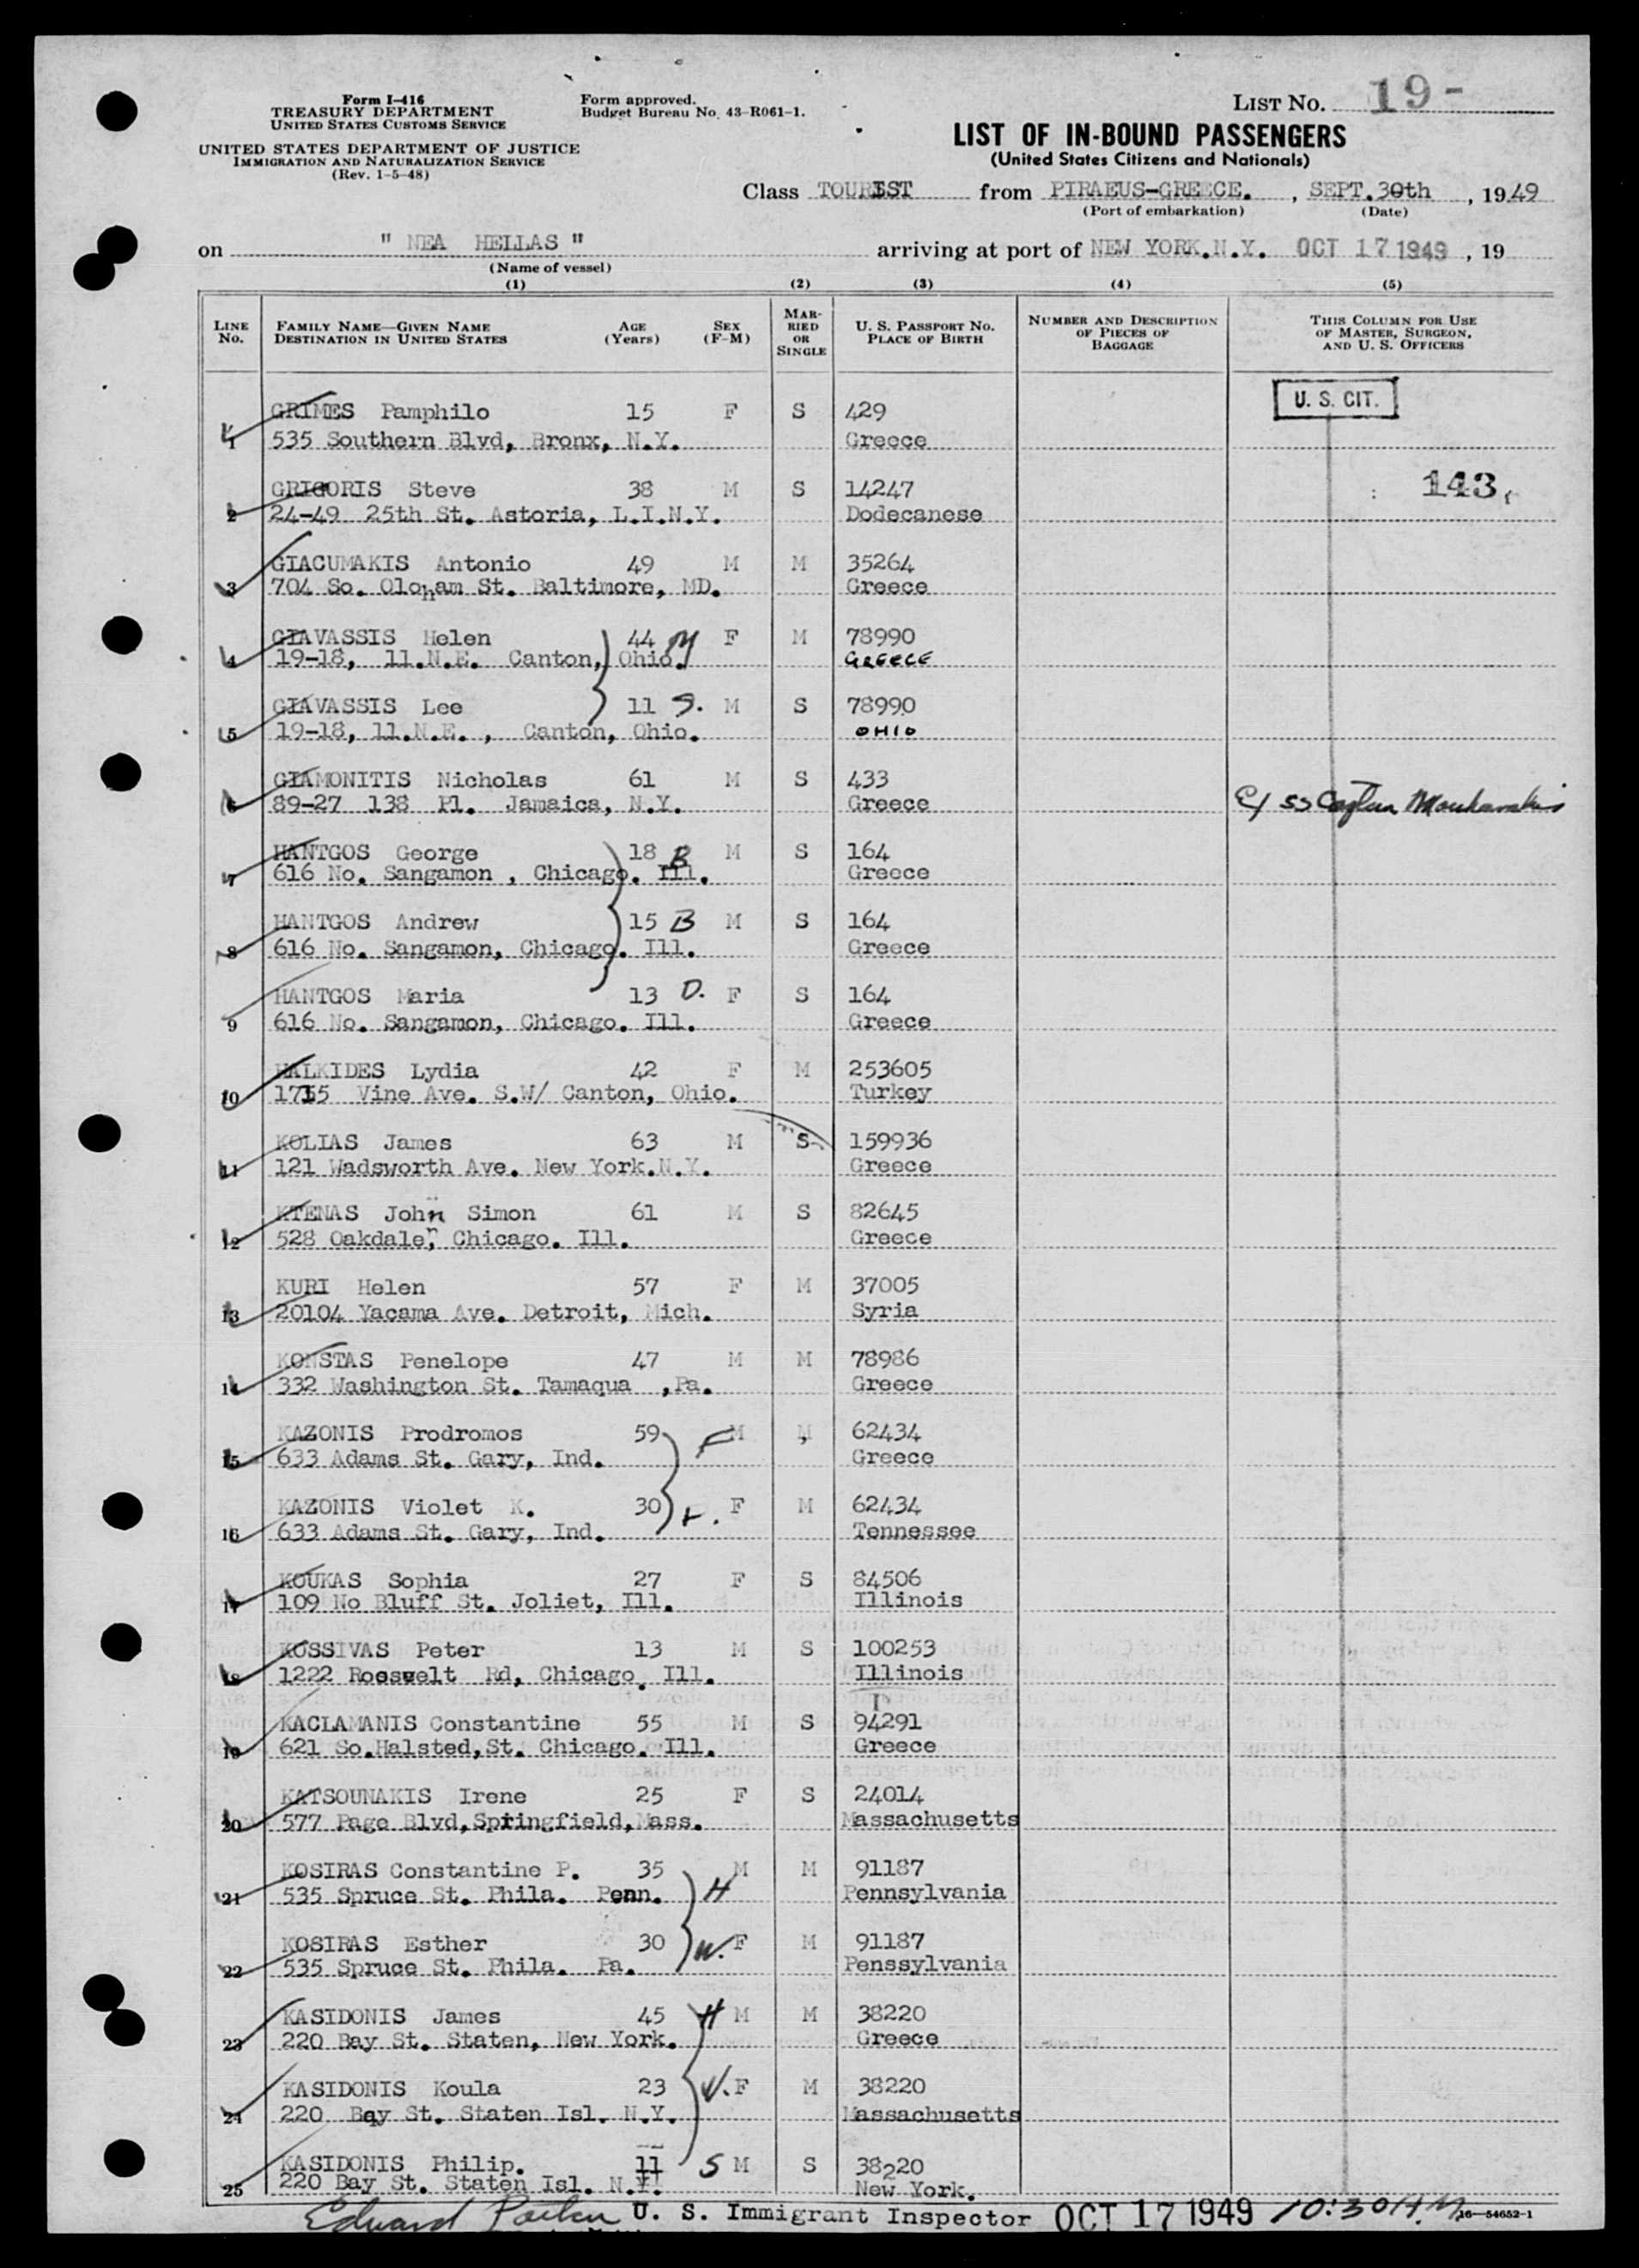 Form I-416
TREASURY DEPARTMENT
UNITED STATES CUSTOMS SERVICE
UNITED STATES DEPARTMENT OF JUSTICE
IMMIGRATION AND NATURALIZATION SERVICE
(Rev. 1-5-48)
Form approved.
Budget Bureau No. 43-R061-1.
LIST NO. 19-
LIST OF IN-BOUND PASSENGERS
(United States Citizens and Nationals)
Class TOURIST from PIRAEUS-GREECE. , SEPT.30th , 1949
(Port of embarkation) (Date)
on " NEA HELLAS " arriving at port of NEW YORK.N.Y. OCT 17 1949 , 19
(Name of vessel)
(1) (2) (3) (4) (5)
LINE NO. FAMILY NAME—GIVEN NAME DESTINATION IN UNITED STATES AGE (Years) SEX (F-M) MARRIED OR SINGLE U. S. PASSPORT NO. PLACE OF BIRTH NUMBER AND DESCRIPTION OF PIECES OF BAGGAGE THIS COLUMN FOR USE OF MASTER, SURGEON, AND U. S. OFFICERS
GRIMES Pamphilo 15 F S 429 U. S. CIT.
1 535 Southern Blvd, Bronx, N.Y. Greece
GRIGORIS Steve 38 M S 14247 143
2 24-49 25th St. Astoria, L.I.N.Y. Dodecanese
GIACUMAKIS Antonio 49 M M 35264
3 704 So. Oloham St. Baltimore, MD. Greece
GIAVASSIS Helen 44 M F M 78990
4 19-18, 11.N.E. Canton, Ohio. GREECE
GIAVASSIS Lee 11 S. M S 78990
5 19-18, 11.N.E. , Canton, Ohio. OHIO
GIAMONITIS Nicholas 61 M S 433
6 89-27 138 Pl. Jamaica, N.Y. Greece
HANTGOS George 18 B M S 164
7 616 No. Sangamon , Chicago. Ill. Greece
HANTGOS Andrew 15 B M S 164
8 616 No. Sangamon, Chicago. Ill. Greece
HANTGOS Maria 13 D. F S 164
9 616 No. Sangamon, Chicago. Ill. Greece
HALKIDES Lydia 42 F M 253605
10 1715 Vine Ave. S.W/ Canton, Ohio. Turkey
KOLIAS James 63 M S 159936
11 121 Wadsworth Ave. New York.N.Y. Greece
KTENAS John Simon 61 M S 82645
12 528 Oakdale, Chicago. Ill. Greece
KURI Helen 57 F M 37005
13 20104 Yacama Ave. Detroit, Mich. Syria
KONSTAS Penelope 47 M M 78986
14 332 Washington St. Tamaqua ,Pa. Greece
KAZONIS Prodromos 59 F M M 62434
15 633 Adams St. Gary, Ind. Greece
KAZONIS Violet K. 30 F M 62434
16 633 Adams St. Gary, Ind. Tennessee
KOUKAS Sophia 27 F S 84506
17 109 No Bluff St. Joliet, Ill. Illinois
KOSSIVAS Peter 13 M S 100253
18 1222 Roosvelt Rd, Chicago. Ill. Illinois
KACLAMANIS Constantine 55 M S 94291
19 621 So.Halsted,St. Chicago. Ill. Greece
KATSOUNAKIS Irene 25 F S 24014
20 577 Page Blvd,Springfield,Mass. Massachusetts
KOSIRAS Constantine P. 35 M M 91187
21 535 Spruce St. Phila. Penn. H Pennsylvania
KOSIRAS Esther 30 W. F M 91187
22 535 Spruce St. Phila. Pa. Penssylvania
KASIDONIS James 45 H M M 38220
23 220 Bay St. Staten, New York. Greece
KASIDONIS Koula 23 W. F M 38220
24 220 Bay St. Staten Isl. N.Y. Massachusetts
KASIDONIS Philip. 11 S M S 38220
25 220 Bay St. Staten Isl. N.Y. New York.
Edward U. S. Immigrant Inspector OCT 17 1949 10:30 A.M. 16—54652-1